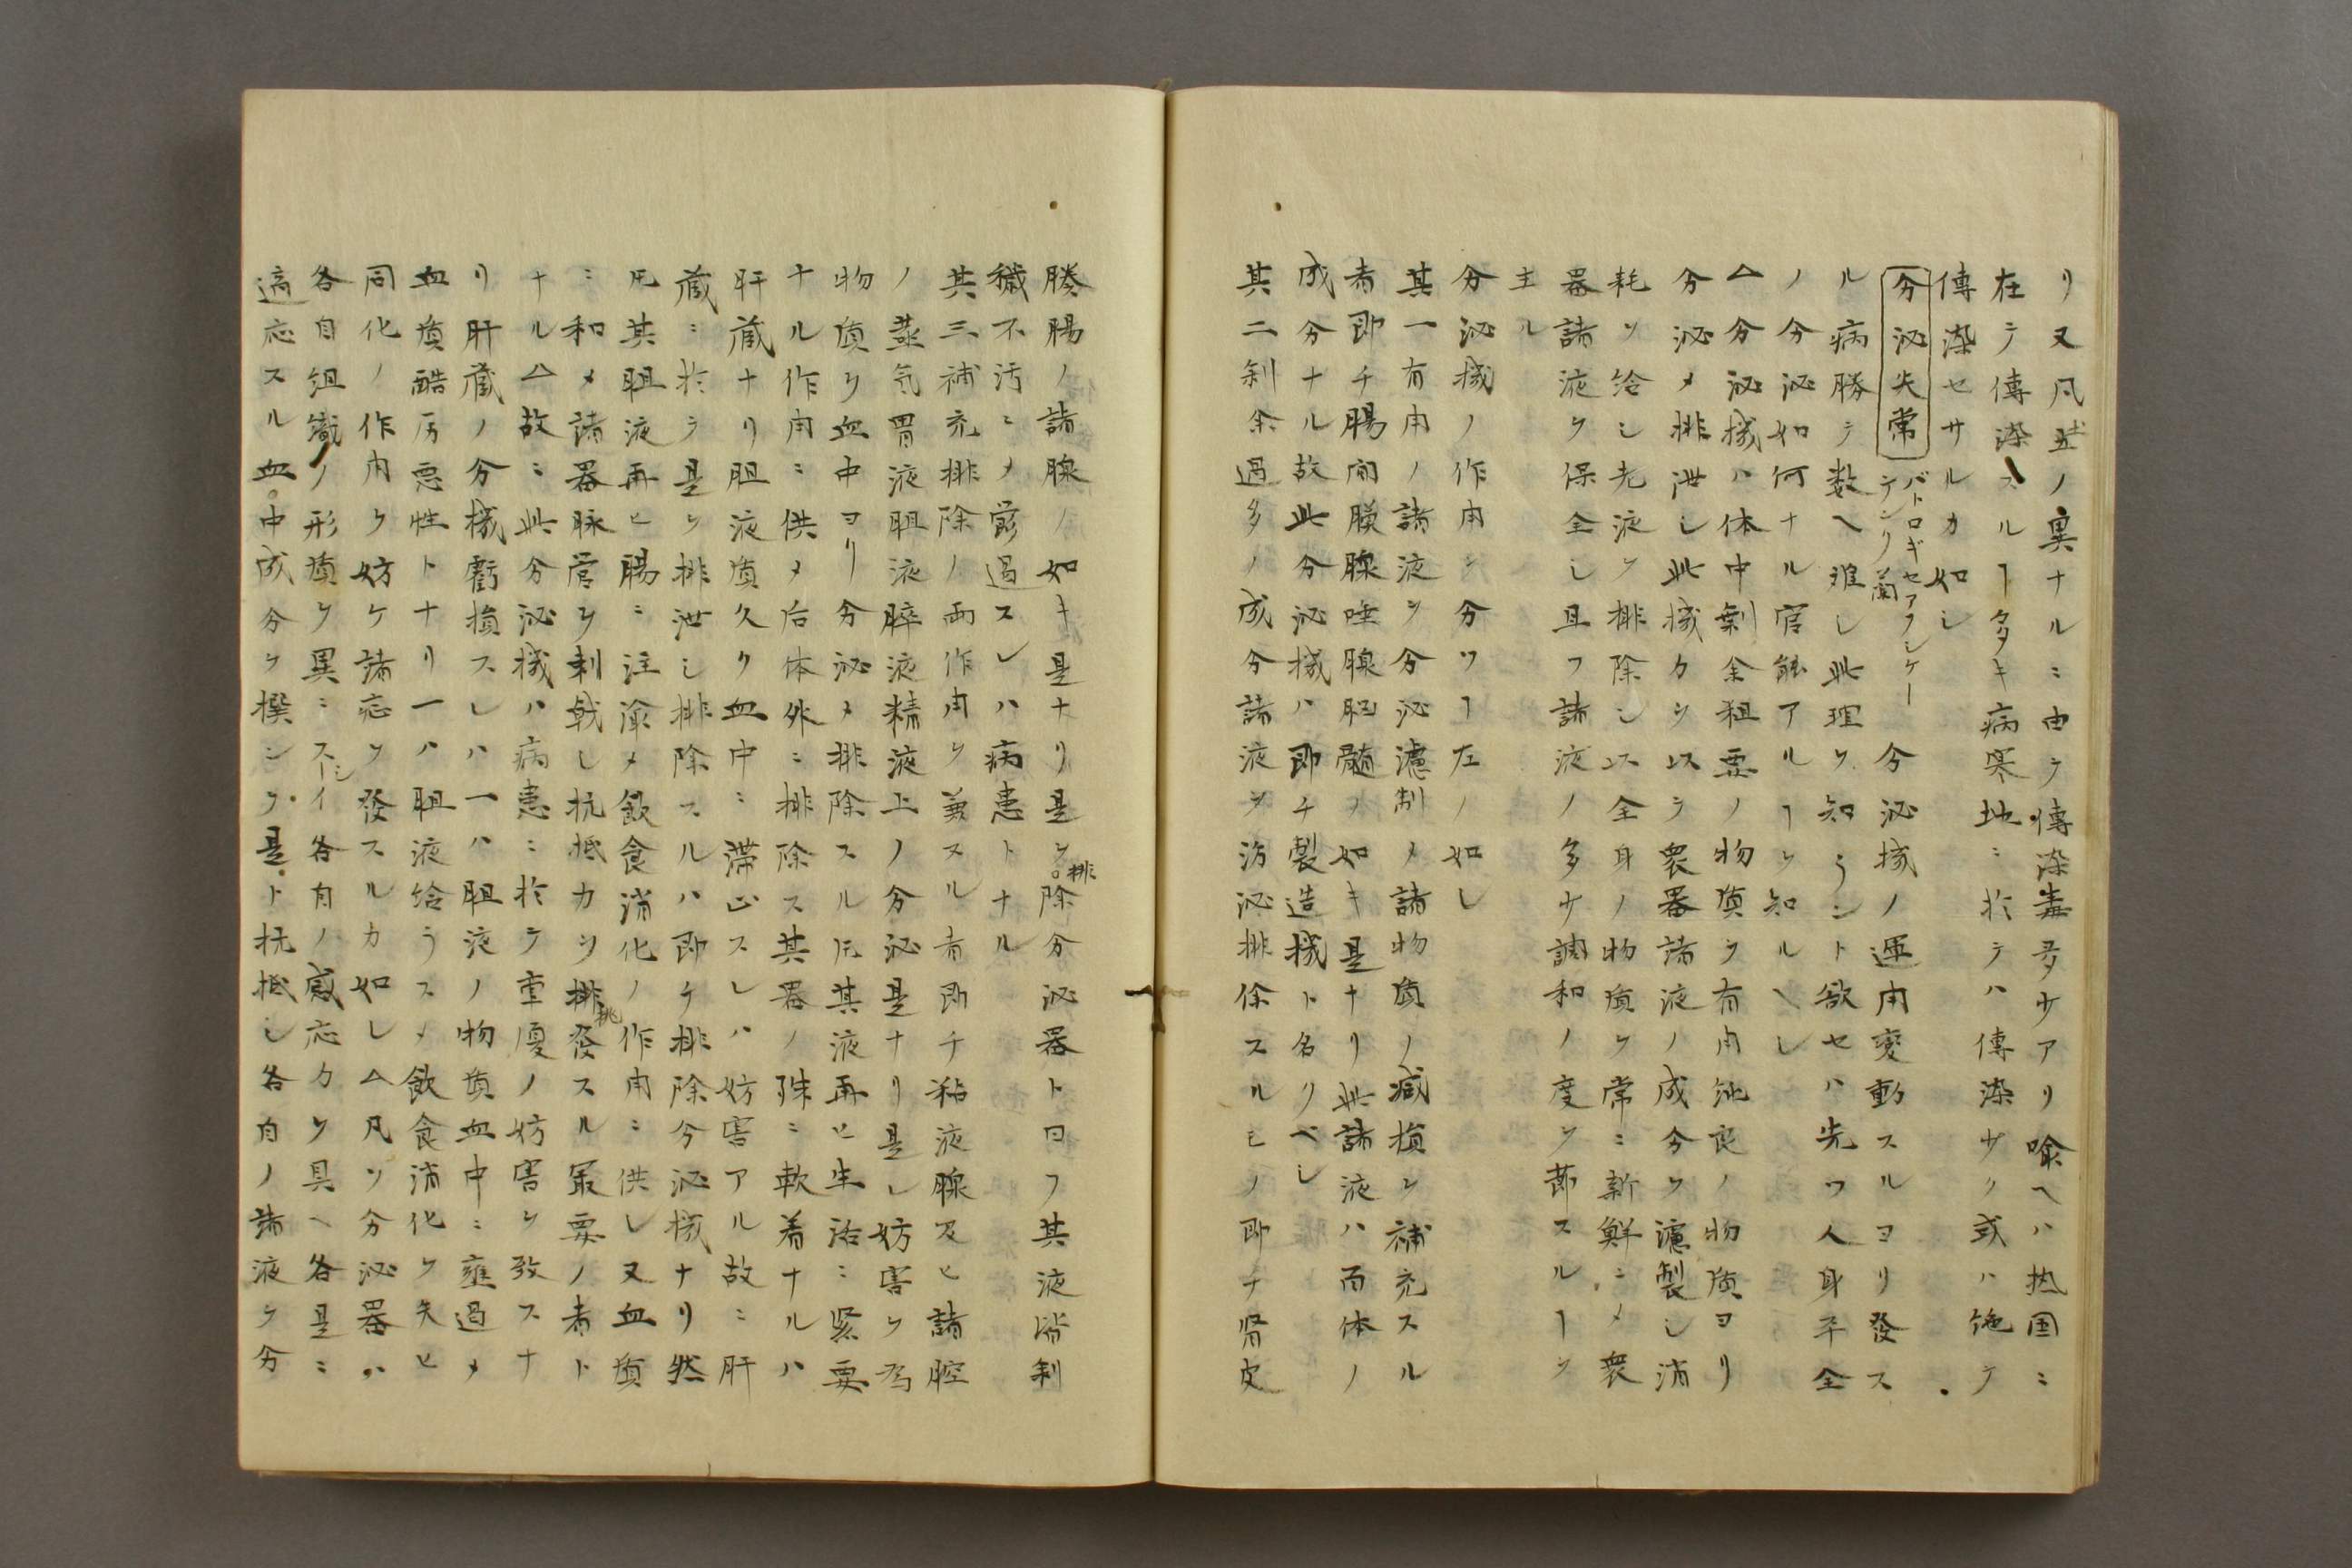 リ又凡土ノ異ナルニ由テ傳染毒多少アリ喩ヘハ热国ニ
在テ傳染スルヿ多キ病寒地ニ於テハ傳染少ク或ハ絶テ
傳染セサルカ如シ
分泌失常 バトロギセアフシケーデンリ蘭 分泌機ノ運用変動スルヨリ發ス
ル病勝テ数ヘ难シ此理ヲ知ラント欲セハ先ツ人身平全
ノ分泌如何ナル官能アルヿヲ知ルヘシ
△分泌機ハ体中剰余粗悪ノ物質ヲ有用純良ノ物質ヨリ
分泌メ排泄シ此機カヲ以テ衆器諸液ノ成分ヲ濾製シ消
耗ヲ給シ老液ヲ排除シ以全身ノ物質ヲ常ニ新鮮ニメ衆
器諸液ヲ保全シ且フ諸液ノ多少調和ノ度ヲ節スルヿヲ
主ル
分泌機ノ作用ヲ分ツヿ左ノ如シ
其一有用ノ諸液ヲ分泌濾制メ諸物質ノ减損ヲ補充スル
者即チ腸間膜腺唾腺胚髄ノ如キ是ナリ此諸液ハ而体ノ
成分ナル故此分泌機ハ即チ製造機ト名クベシ
其二剰余過多ノ成分諸液ヲ汾泌排除スルモノ即チ腎皮
膝腸ノ諸腺ノ如キ是ナリ是ヲ排除分泌器ト曰フ其液皆剰
穢不汚ニメ鬱過スレハ病患トナル
其三補充排除ノ両作用ヲ兼ヌル者即チ粘液腺及ヒ諸腔
ノ蒸気胃液胆液膵液精液上ノ分泌是ナリ是レ妨害ヲ為
物質ヲ血中ヨリ分泌メ排除スル凡其液再ヒ生活ニ緊要
ナル作用ニ供メ后体外ニ排除ス其器ノ殊ニ軟着ナルハ
肝蔵ナリ胆液質久ク血中ニ滞止スレハ妨害アル故ニ肝
蔵ニ於テ是ヲ排泄シ排除スルハ即チ排除分泌機ナリ然
凡其胆液再ヒ腸ニ注瀉メ飲食消化ノ作用ニ供シ又血質
ニ和メ諸器脉管ヲ刺戟シ抗抵カヲ排發スル最要ノ者ト
ナル△故ニ此分泌機ハ病患ニ於テ重復ノ妨害ヲ致スナ
リ肝蔵ノ分機虧損スレハ一ハ胆液ノ物質血中ニ壅過メ
血質酷厉悪性トナリ一ハ胆液給ラスメ飲食消化ヲ失ヒ
同化ノ作用ヲ妨ケ諸症ヲ發スルカ如シ△凡ソ分泌器ハ
各自组織ノ形質ヲ異ニスーイ各自ノ感応カヲ具ヘ各是ニ
適応スル血中成分ヲ撰シテ是ト抚抵シ各自ノ諸液ヲ分